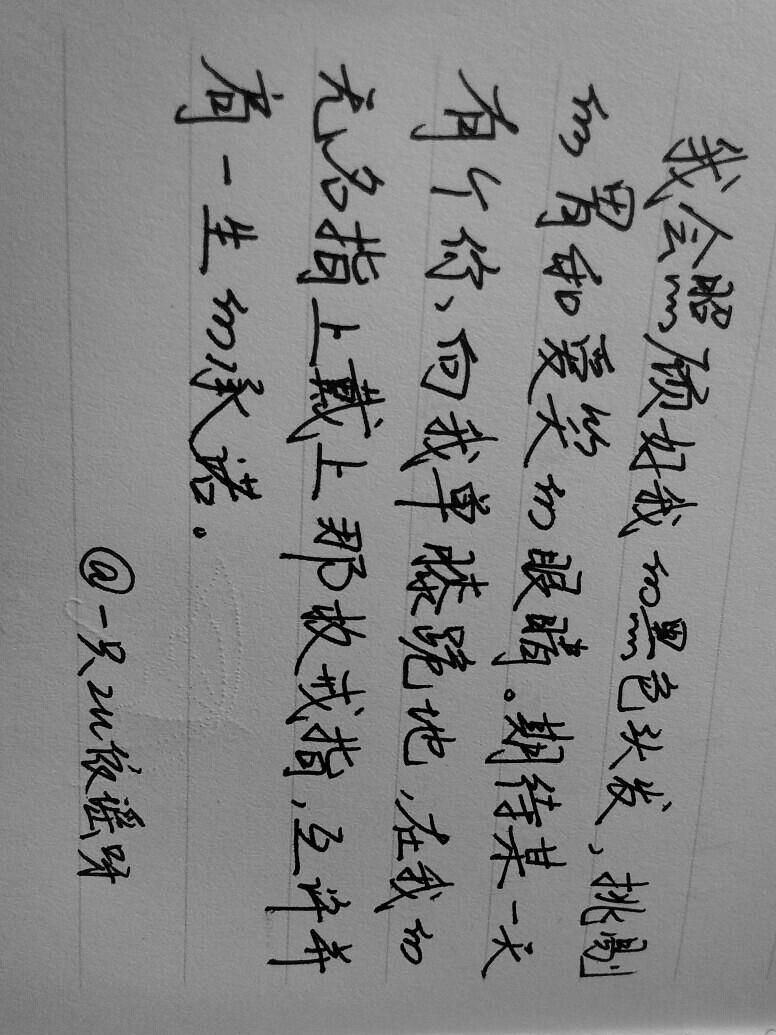 我会照顾好我的黑色头发、挑剔
的胃和爱笑的眼睛。期待某一天
有个你、向我单膝跪地,在我的
无名指上戴上那枚戒指,互许并
有一生的承诺。
@一只zu依谣呀